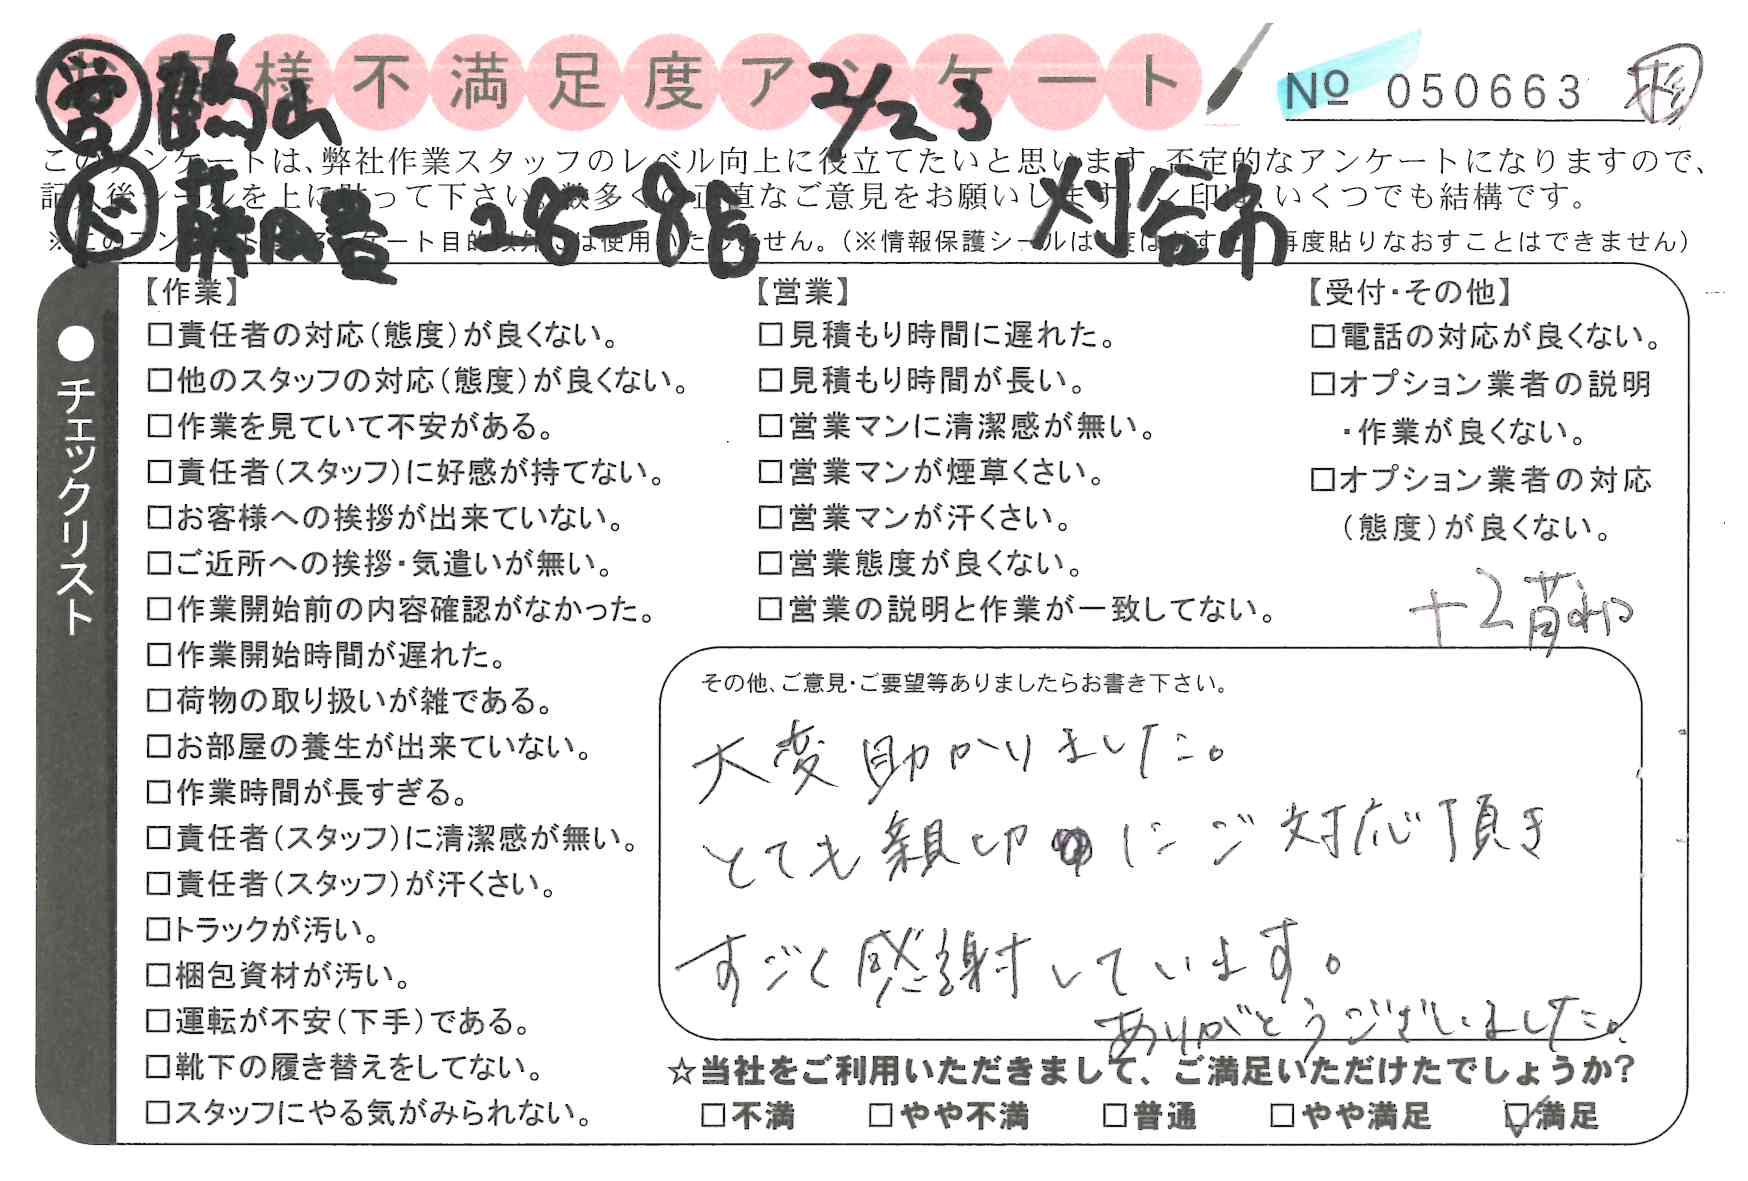 お客様不満足度アンケート
No 050663 杉
営 鶴山 2/23
このアンケートは、弊社作業スタッフのレベル向上に役立てたいと思います。不定的なアンケートになりますので、
記入後シールを上に貼って下さい。数多くの正直なご意見をお願いします。レ印は、いくつでも結構です。
ド 藤田 28-8 刈谷市
※このアンケートはアンケート目的以外には使用いたしません。（※情報保護シールは1度はがすと、再度貼りなおすことはできません）
●チェックリスト
【作業】
□責任者の対応（態度）が良くない。
□他のスタッフの対応（態度）が良くない。
□作業を見ていて不安がある。
□責任者（スタッフ）に好感が持てない。
□お客様への挨拶が出来ていない。
□ご近所への挨拶・気遣いが無い。
□作業開始前の内容確認がなかった。
□作業開始時間が遅れた。
□荷物の取り扱いが雑である。
□お部屋の養生が出来ていない。
□作業時間が長すぎる。
□責任者（スタッフ）に清潔感が無い。
□責任者（スタッフ）が汗くさい。
□トラックが汚い。
□梱包資材が汚い。
□運転が不安（下手）である。
□靴下の履き替えをしてない。
□スタッフにやる気がみられない。
【営業】
□見積もり時間に遅れた。
□見積もり時間が長い。
□営業マンに清潔感が無い。
□営業マンが煙草くさい。
□営業マンが汗くさい。
□営業態度が良くない。
□営業の説明と作業が一致してない。
【受付・その他】
□電話の対応が良くない。
□オプション業者の説明
・作業が良くない。
□オプション業者の対応
（態度）が良くない。
その他、ご意見・ご要望等ありましたらお書き下さい。
大変助かりました。
とても親切にご対応頂き
すごく感謝しています。
ありがとうございました。
☆当社をご利用いただきまして、ご満足いただけたでしょうか？
□不満 □やや不満 □普通 □やや満足 ☑満足